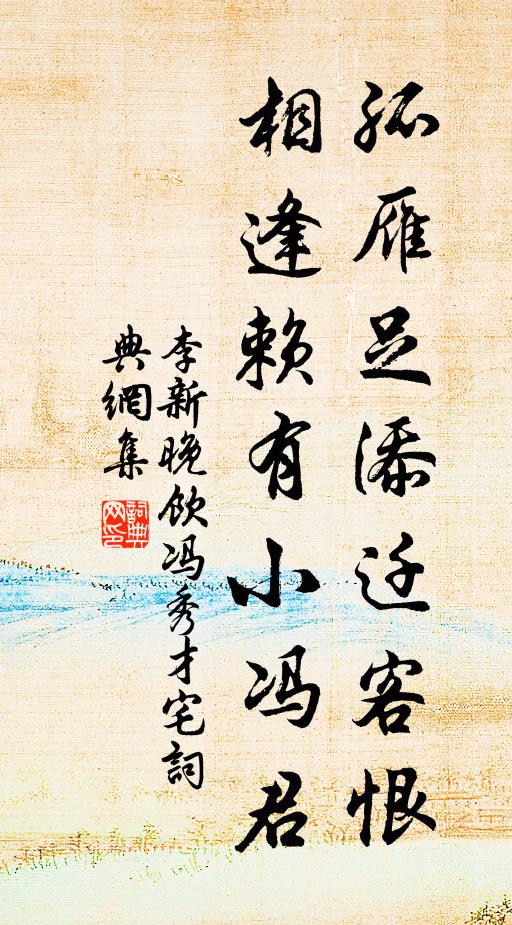 孤雁足添迁客恨
相逢赖有小冯君
李新晚饮冯秀才宅詞
典網集
詞典网印